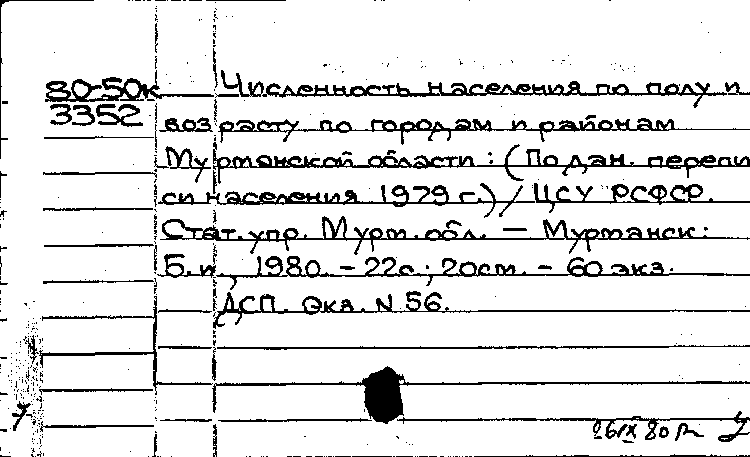 80-50к Численность населения по полу и
3352 возрасту по городам и районам
Мурманской области: (По дан. перепи
си населения 1979 г.) / ЦСУ РСФСР.
Стат. упр. Мурм. обл. – Мурманск:
Б.и., 1980. – 22с.; 20см. – 60 экз.
ДСП. Экз. N 56.
26/IX 80